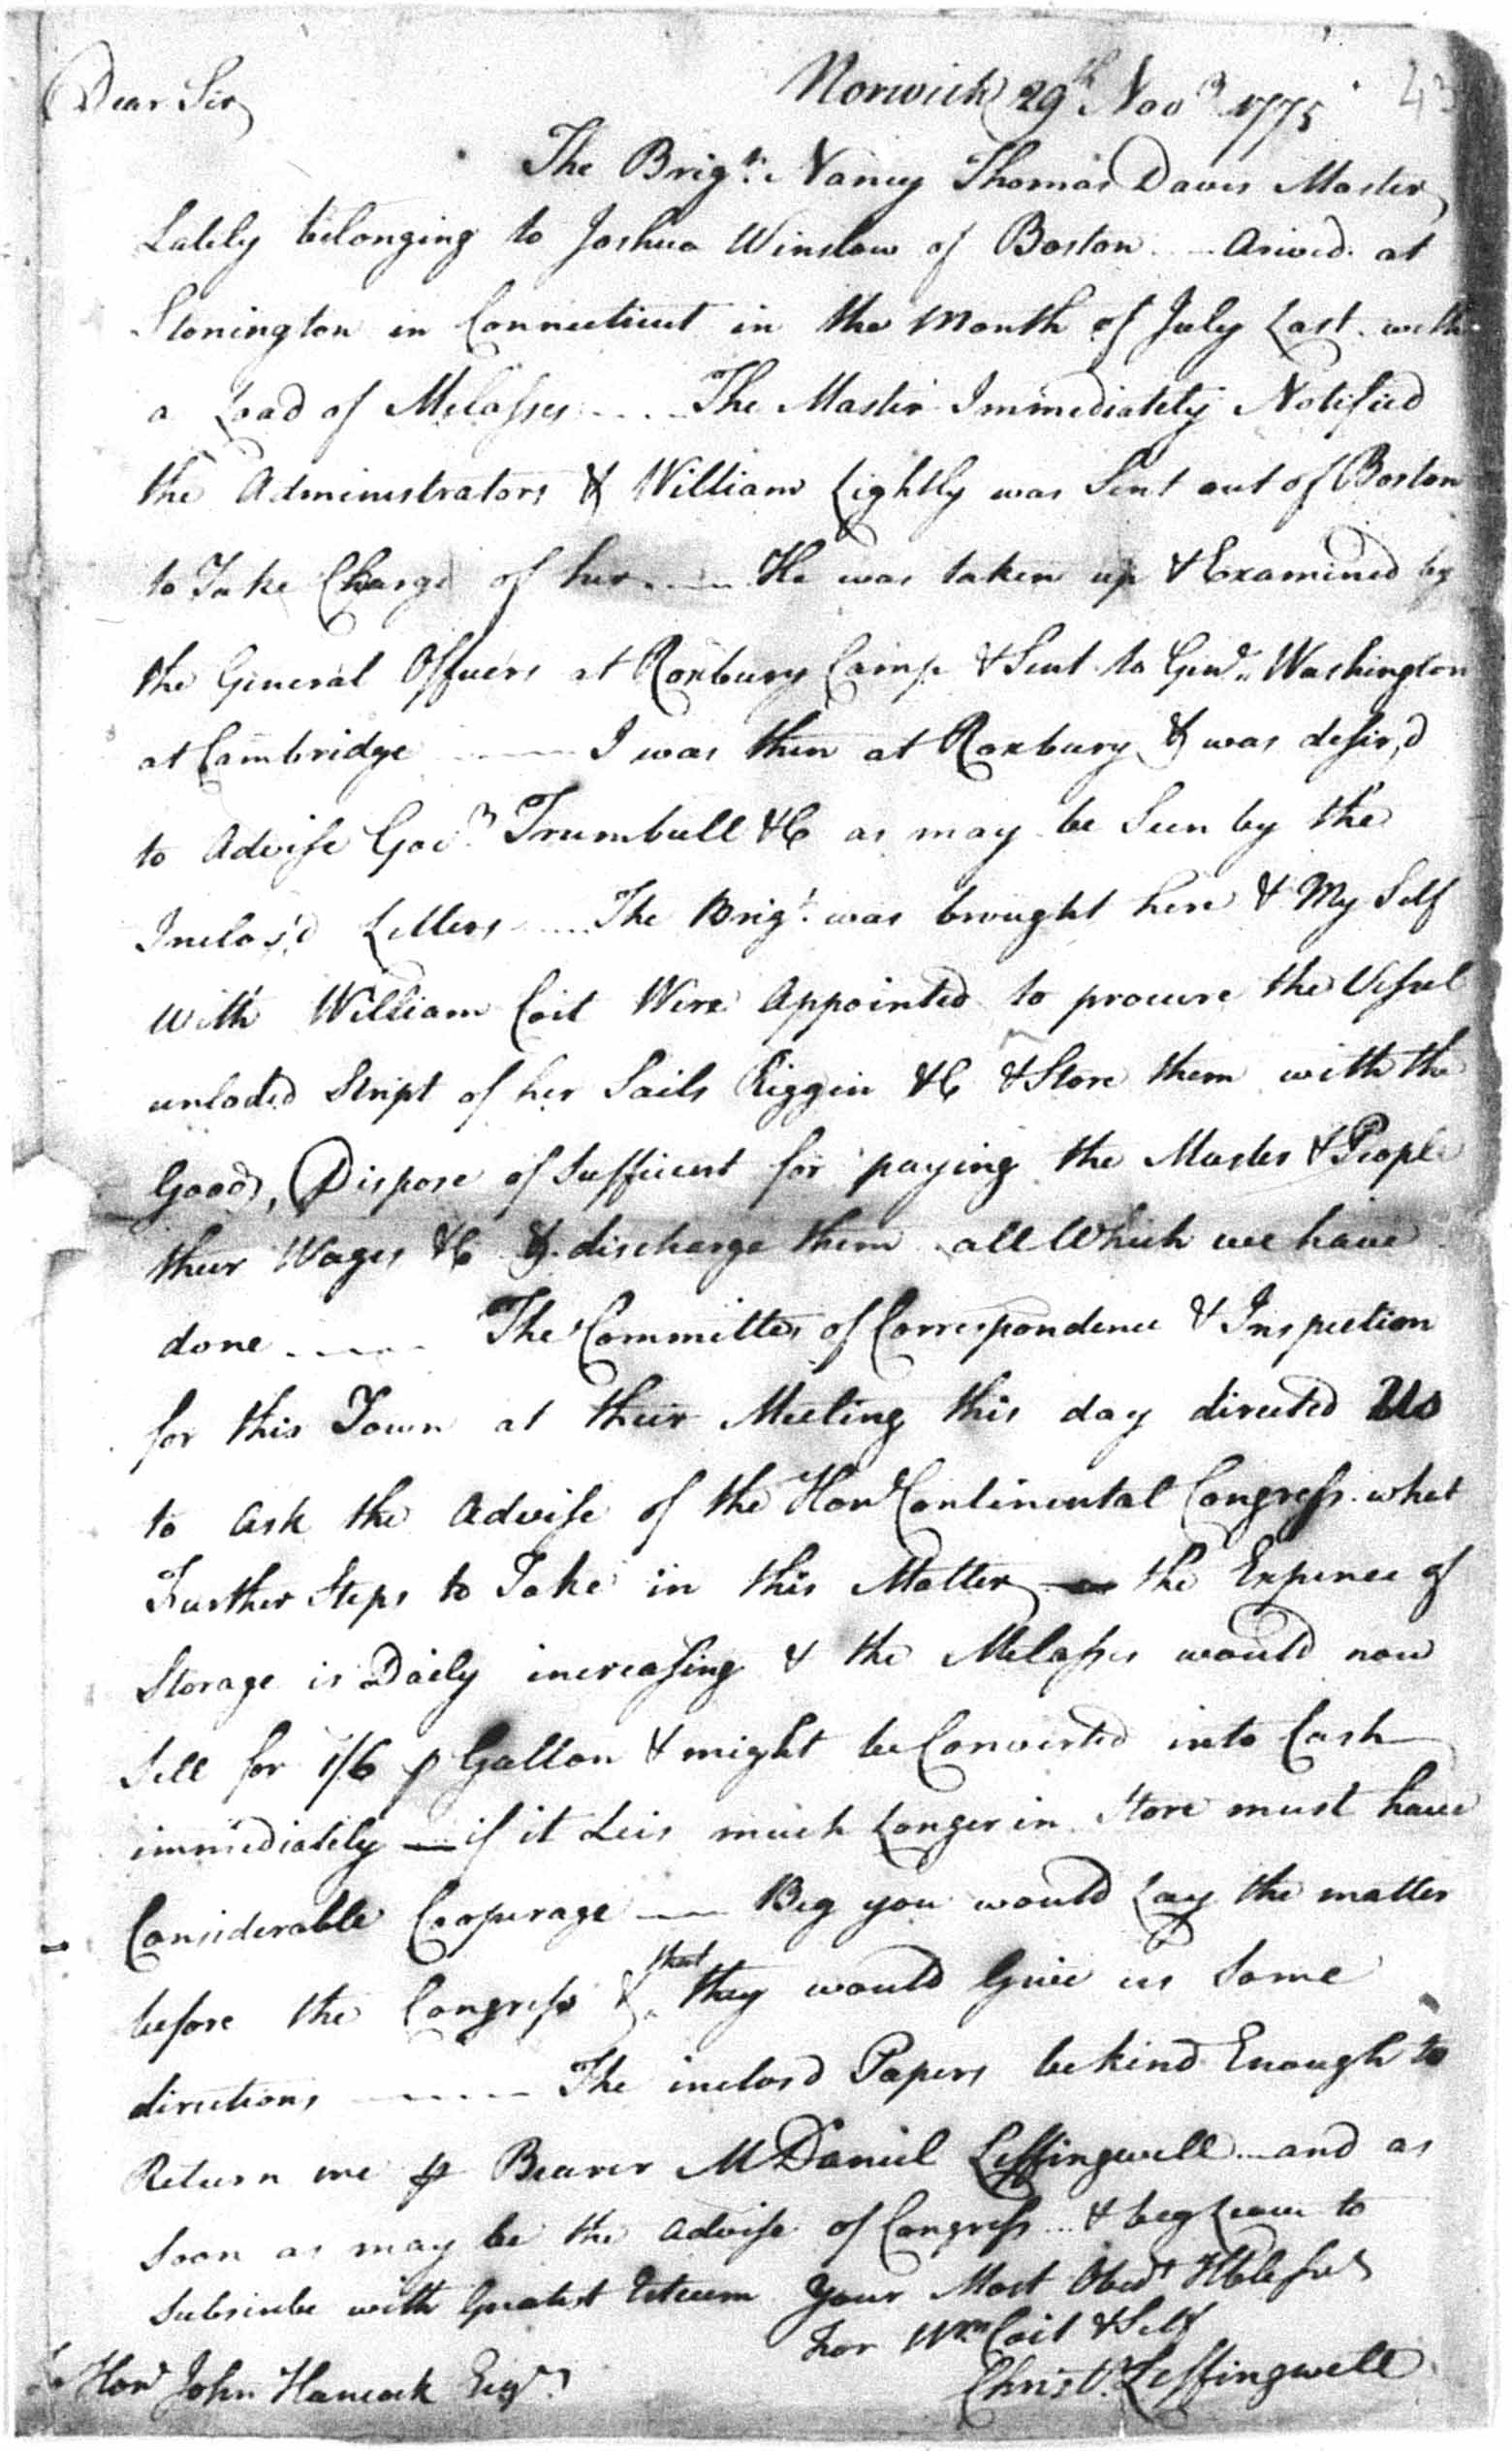 43
Norwich 29th Novr 1775
Dear Sir
The Brign. Nancy Thomas Davis Master
Lately belonging to Joshua Winslow of Boston Arived at
Stonington in Connecticut in the Month of July Last with
a Load of Melasses The Master Immediately Notified
the Administrators & William Lightly was Sent out of Boston
to Take Charge of her He was taken up & Examined by
the General Officers at Roxbury Camp & Sent to Genl. Washington
at Cambridge I was then at Roxbury & was desir,d
to Advise Govr. Trumbull &C as may be Seen by the
Inclos'd Letters The Brigt. was brought here & My Self
with William Coit Were Appointed to procure the Vessel
unloded Stript of her Sails Riggin &C & Store them with the
Goods, Dispose of Sufficient for paying the Master & People
their Wages &C & discharge them all Which we have
done The Committee of Correspondence & Inspection
for this Town at their Meeting this day directed Us
to ask the Advise of the Honl Continental Congress what
Further Steps to Take in this Matter — the Expence of
Storage is Daily increasing & the Melasses would now
Sell for 1/6 p Gallon & might be Converted into Cash
immediately — if it Leis much Longer in Store must have
Considerable Cooperage — Beg you would Lay the matter
before the Congress & that they would Give us Some
directions The inclosd Papers be kind Enough to
Return me p Bearer Mr Daniel Leffingwell and as
Soon as may be the advise of Congress & beg Leave to
Subscribe with Greatest Esteem Your Most Obedt Hble Servt
for Wm. Coit & Self
Christr. Leffingwell
To Honl John Hancock Esqr.